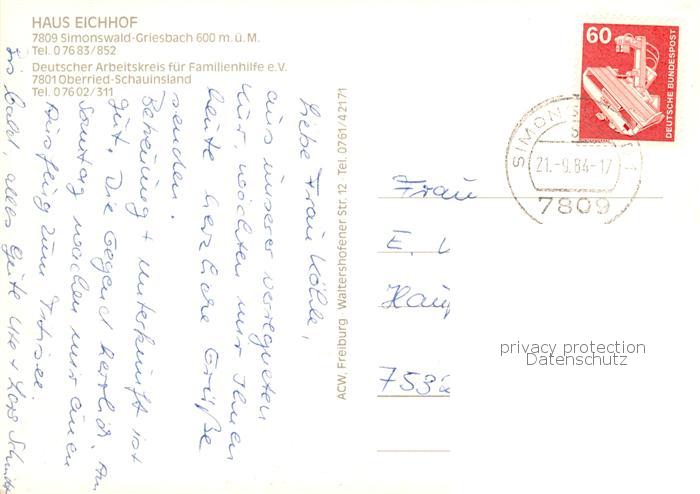 HAUS EICHHOF
7809 Simonswald-Griesbach 600 m. ü. M.
Tel. 0 76 83 / 852
Deutscher Arbeitskreis für Familienhilfe e.V.
7801 Oberried-Schauinsland
Tel. 0 76 02 / 311
Liebe Frau Köhle,
aus unserer verregneten
Kur, möchten wir Ihnen
heute herzliche Grüße
senden.
Betreuung + Unterkunft ist
gut. Die Gegend herrlich. Am
Sonntag machen wir einen
Ausflug zum Titisee.
Bis bald, alles Gute
ACW, Freiburg Waltershofener Str. 12 Tel. 0761/4 21 71
60
DEUTSCHE BUNDESPOST
21.-9.84-17
7809
Frau
E.
Hau
753
privacy protection
Datenschutz